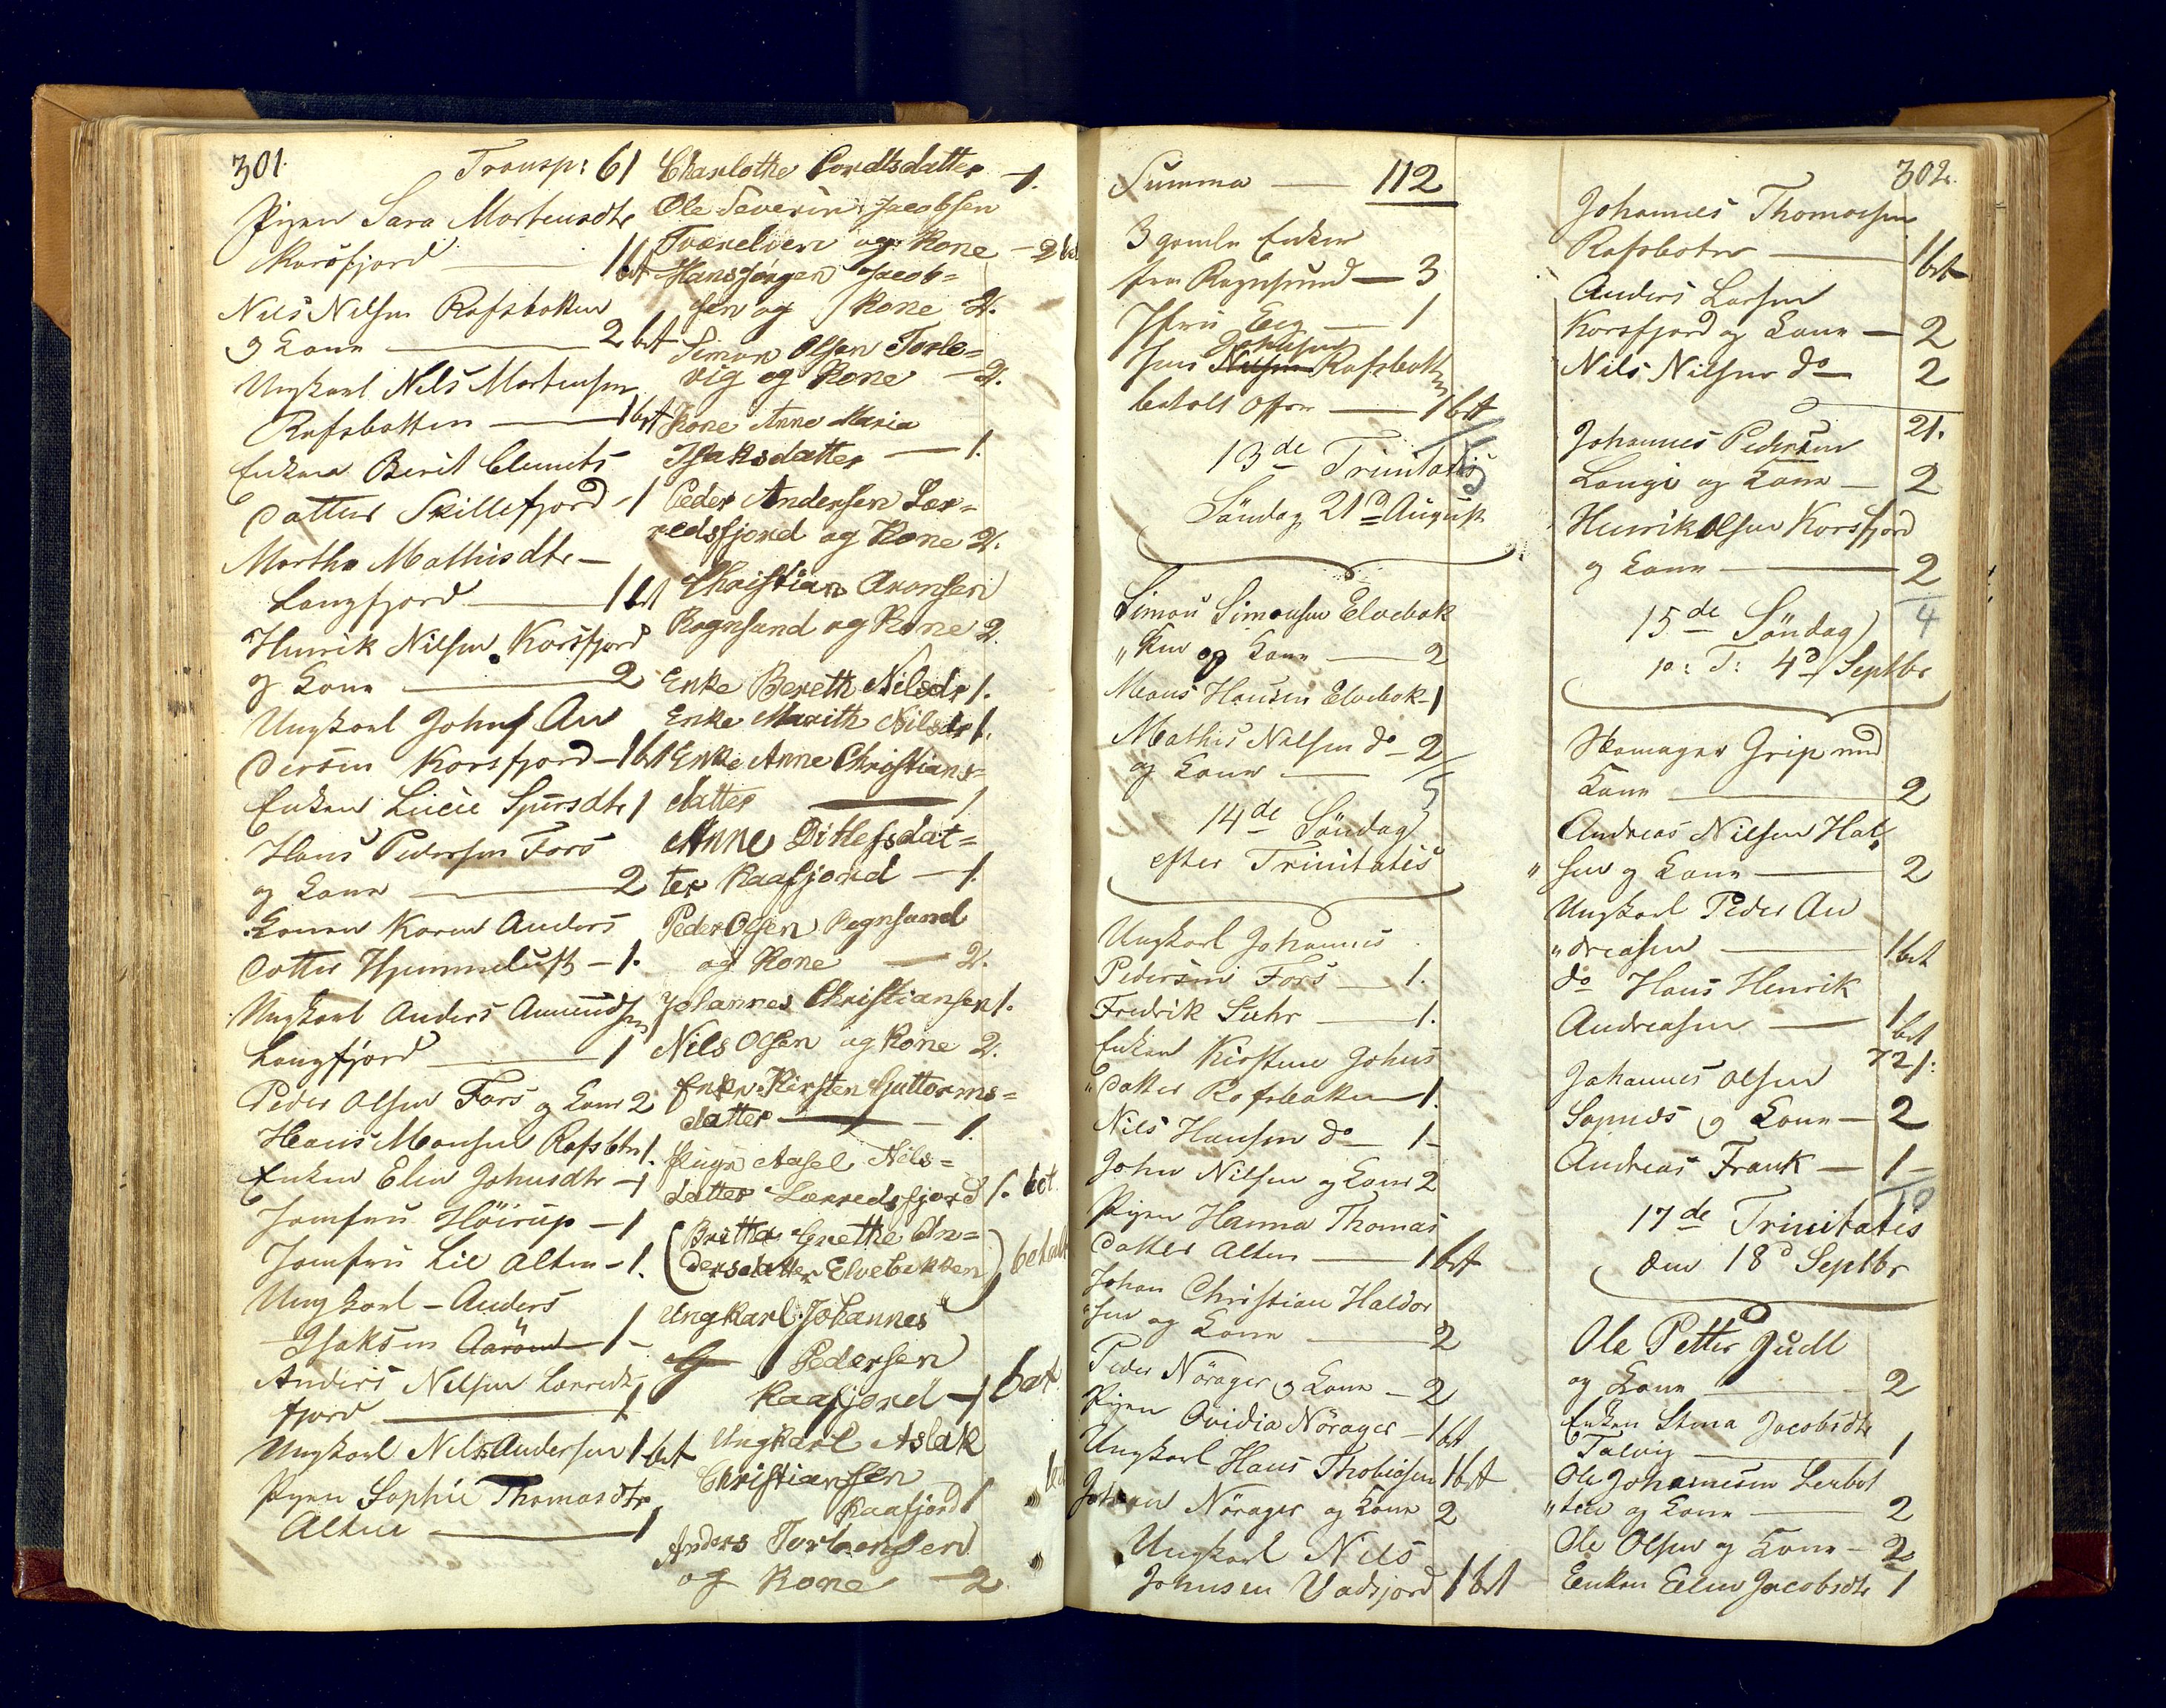 301.
Transp: 61
Pigen Sara Mortensdtr
Korsfjord — 1 bet
Nils Nilsen Rafsbotten
og Kone — 2 bet
Ungkarl Nils Mortensen
Rafsbotten — 1 bet
Enken Berit Clemets
datter Skillefjord - 1
Martha Mathisdtr —
Langfjord — 1 bet
Henrik Nilsen Korsfjord
og Kone — 2
Ungkarl Johns An
dersen Korsfjord — 1 bet
Enken Lucie Sjursdtr 1
Hans Pedersen Fors
og Kone — 2
Konen Karen Anders
datter Hjemmeluft — 1.
Ungkarl Anders Amundsen
Langfjord — 1
Peder Olsen Fors og Kone 2
Hans Monsen Rafsbtn 1.
Enken Elen Johnsdtr — 1
Jomfru Höirup — 1
Jomfru Lie Alten — 1.
Ungkarl — Anders
Isaksen Aarøen — 1 —
Anders Nilsen Lerreds
fjord — 1
Ungkarl Nils Andersen 1 bet
Pigen Sophie Thomasdtr
Alten — 1
Charlothe Cordtsdatter — 1.
Ole Severin Jacobsen
Tværelven og Kone — 2 bet
Hans Jørgen Jacob=
sen og Kone 2.
Simon Olsen Torle=
vig og Kone — 2.
Kone Anne Maria
Isaksdatter — 1.
Peder Andersen Lær=
redsfjord og Kone 2.
Christian Aronsen
Rognsund og Kone 2.
Enke Bereth Nilsdr 1.
Enke Marith Nilsdr 1.
Enke Anne Christians=
datter — 1
Anne Ditlefsdat=
ter Kaafjord — 1.
Peder Olsen Rognsund
og Kone — 2.
Johannes Christiansen 1.
Nils Olsen og Kone 2.
Enke Kirsten Guttorms=
datter — 1.
Pigen Aasel Nils=
datter Lærredsfjord 1. bet.
(Britha Grethe An=
dersdatter Elvebakken) betalt
Ungkarl Johannes
Pedersen
Kaafjord — 1 bet
Ungkarl Aslak
Christiansen
Kaafjord 1 bet
Anders Torbensen
og Kone — 2.
Summa — 112
3 gamle Enker
fra Rognsund — 3
Jfru — 1
Johnsen
Jens Nilsen Rafsbotten
betalt Offer — 1 bet
5
13de Trinitatis
Söndag 21de August
Simon Simonsen Elvebak
"ken og Kone — 2
Mons Hansen Elvebak — 1
Mathis Nilsen do — 2
og Kone —
5
14de Söndag
efter Trinitatis
Ungkarl Johannes
Pedersen Fors — 1.
Fredrik Suhr — 1.
Enken Kirsten Johns
"datter Rafsbotten — 1.
Nils Hansen do — 1 —
John Nilsen og Kone 2
Pigen Hanna Thomas
datter Alten — 1 bet
Johan Christian Haldor
"sen og Kone — 2
Peder Nörager og Kone — 2
Pigen Ovidia Nörager — 1 bet
Ungkarl Hans Thobiasen 1 bet
Johan Nörager og Kone 2
Ungkarl Nils
Johnsen 1 bet
302.
Johannes Thomassen
Rafsbotn — 1 bet
Anders Larsen
Korsfjord og Kone — 2
Nils Nilsen do — 2
21.
Johannes Pedersen
Langi og Kone — 2
Henrik Olsen Korsfjord
og Kone — 2
4
15de Söndag
p: T: 4de Septbr
Skomager Grip med
Kone — 2
Andreas Nilsen Hal"
"sen og Kone — 2
Ungkarl Peder An
"dreasen — 1 bet
do Hans Henrik
Andreasen — 1 bet
Johannes Olsen
Sopnes og Kone — 2
Andreas Frank — 1 —
10
17de Trinitatis
den 18de Septbr
Ole Petter Gudl
og Kone — 2
Enken Stina Jacobsdtr
Talvig — 1
Ole Johannesen Lerbot
"ten og Kone — 2
Ole Olsen og Kone — 2
Enken Elen Jacobsdtr 1